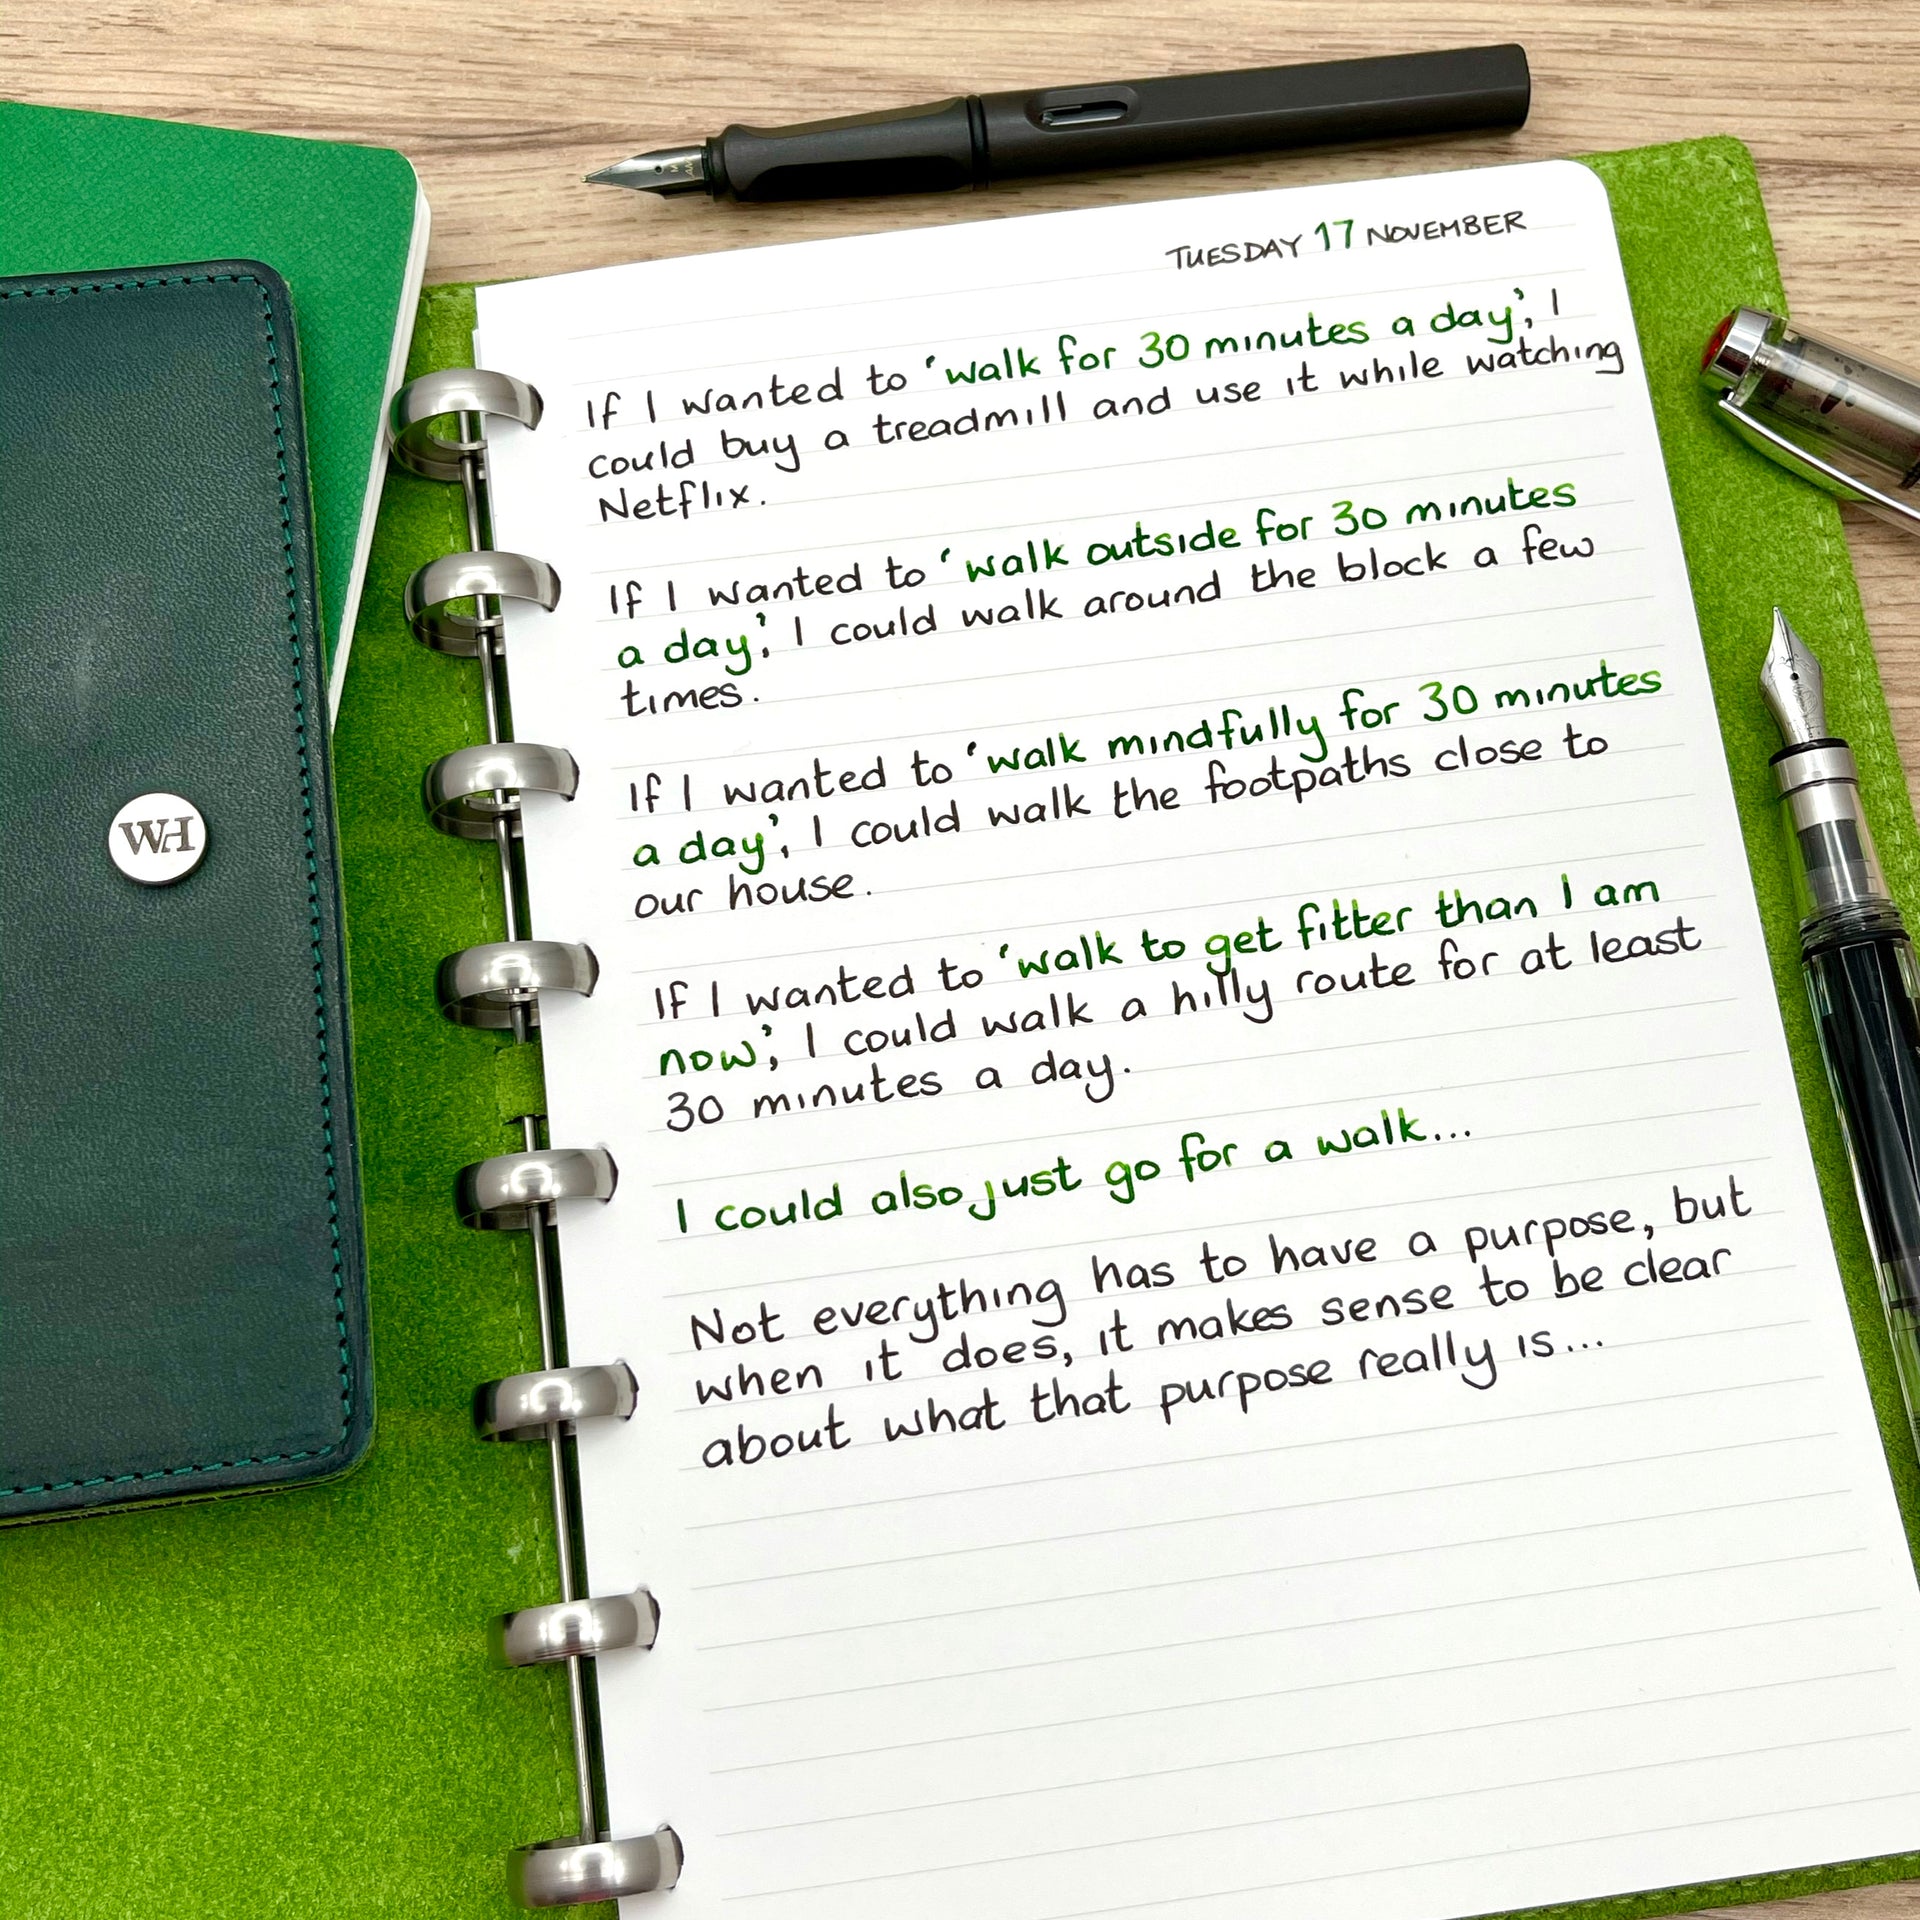 TUESDAY 17 NOVEMBER
If I wanted to 'walk for 30 minutes a day', I
could buy a treadmill and use it while watching
Netflix.
If I wanted to 'walk outside for 30 minutes
a day', I could walk around the block a few
times.
If I wanted to 'walk mindfully for 30 minutes
a day', I could walk the footpaths close to
our house.
If I wanted to 'walk to get fitter than I am
now', I could walk a hilly route for at least
30 minutes a day.
I could also just go for a walk...
Not everything has to have a purpose, but
when it does, it makes sense to be clear
about what that purpose really is...
WH